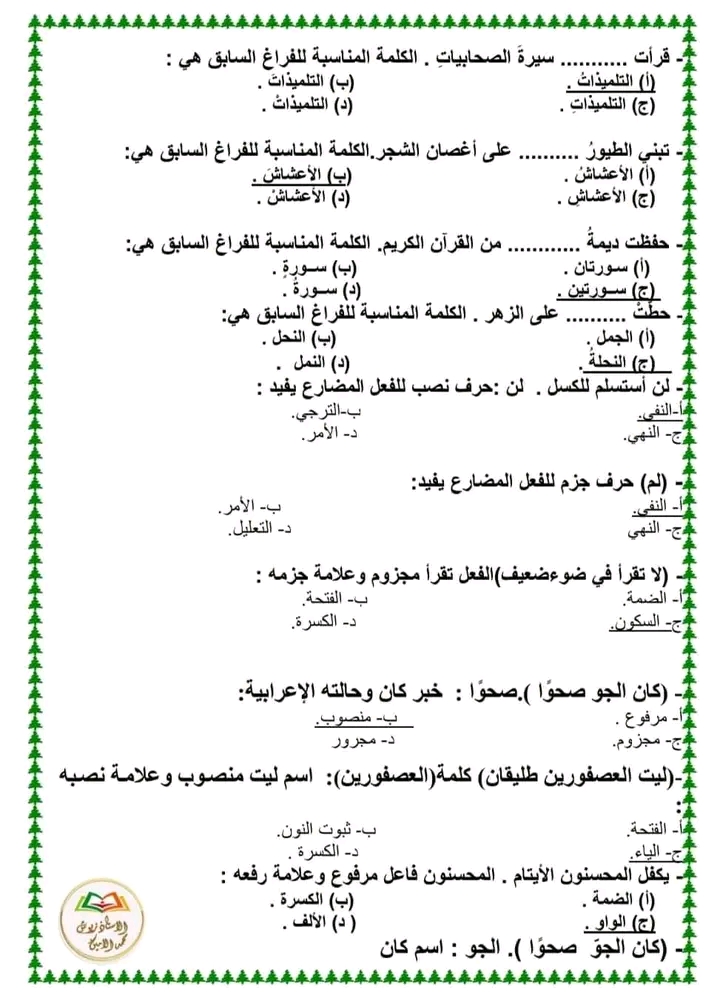 - قرأت ........... سيرةَ الصحابياتِ . الكلمة المناسبة للفراغ السابق هي :
(أ) التلميذاتُ . (ب) التلميذاتَ .
(ج) التلميذاتِ . (د) التلميذاتْ .
- تبني الطيورُ .......... على أغصان الشجر.الكلمة المناسبة للفراغ السابق هي:
(أ) الأعشاشُ . (ب) الأعشاشَ .
(ج) الأعشاشِ . (د) الأعشاشْ .
- حفظت ديمةُ ............ من القرآن الكريم. الكلمة المناسبة للفراغ السابق هي:
(أ) سورتان . (ب) سورةٍ .
(ج) سورتين . (د) سورةُ .
- حطّتْ .......... على الزهر . الكلمة المناسبة للفراغ السابق هي:
(أ) الجمل . (ب) النحل .
(ج) النحلةُ . (د) النمل .
- لن أستسلم للكسل . لن :حرف نصب للفعل المضارع يفيد :
أ-النفي. ب-الترجي.
ج- النهي. د- الأمر.
- (لم) حرف جزم للفعل المضارع يفيد:
أ- النفي. ب- الأمر.
ج- النهي د- التعليل.
- (لا تقرأ في ضوءضعيف)الفعل تقرأ مجزوم وعلامة جزمه :
أ- الضمة. ب- الفتحة.
ج- السكون. د- الكسرة.
- (كان الجو صحوًا ).صحوًا : خبر كان وحالته الإعرابية:
أ- مرفوع . ب- منصوب.
ج- مجزوم. د- مجرور
-(ليت العصفورين طليقان) كلمة(العصفورين): اسم ليت منصوب وعلامة نصبه
:
أ- الفتحة. ب- ثبوت النون.
ج- الياء. د- الكسرة .
- يكفل المحسنون الأيتام . المحسنون فاعل مرفوع وعلامة رفعه :
(أ) الضمة . (ب) الكسرة .
(ج) الواو . ( د) الألف .
- (كان الجوّ صحوًا ). الجو : اسم كان